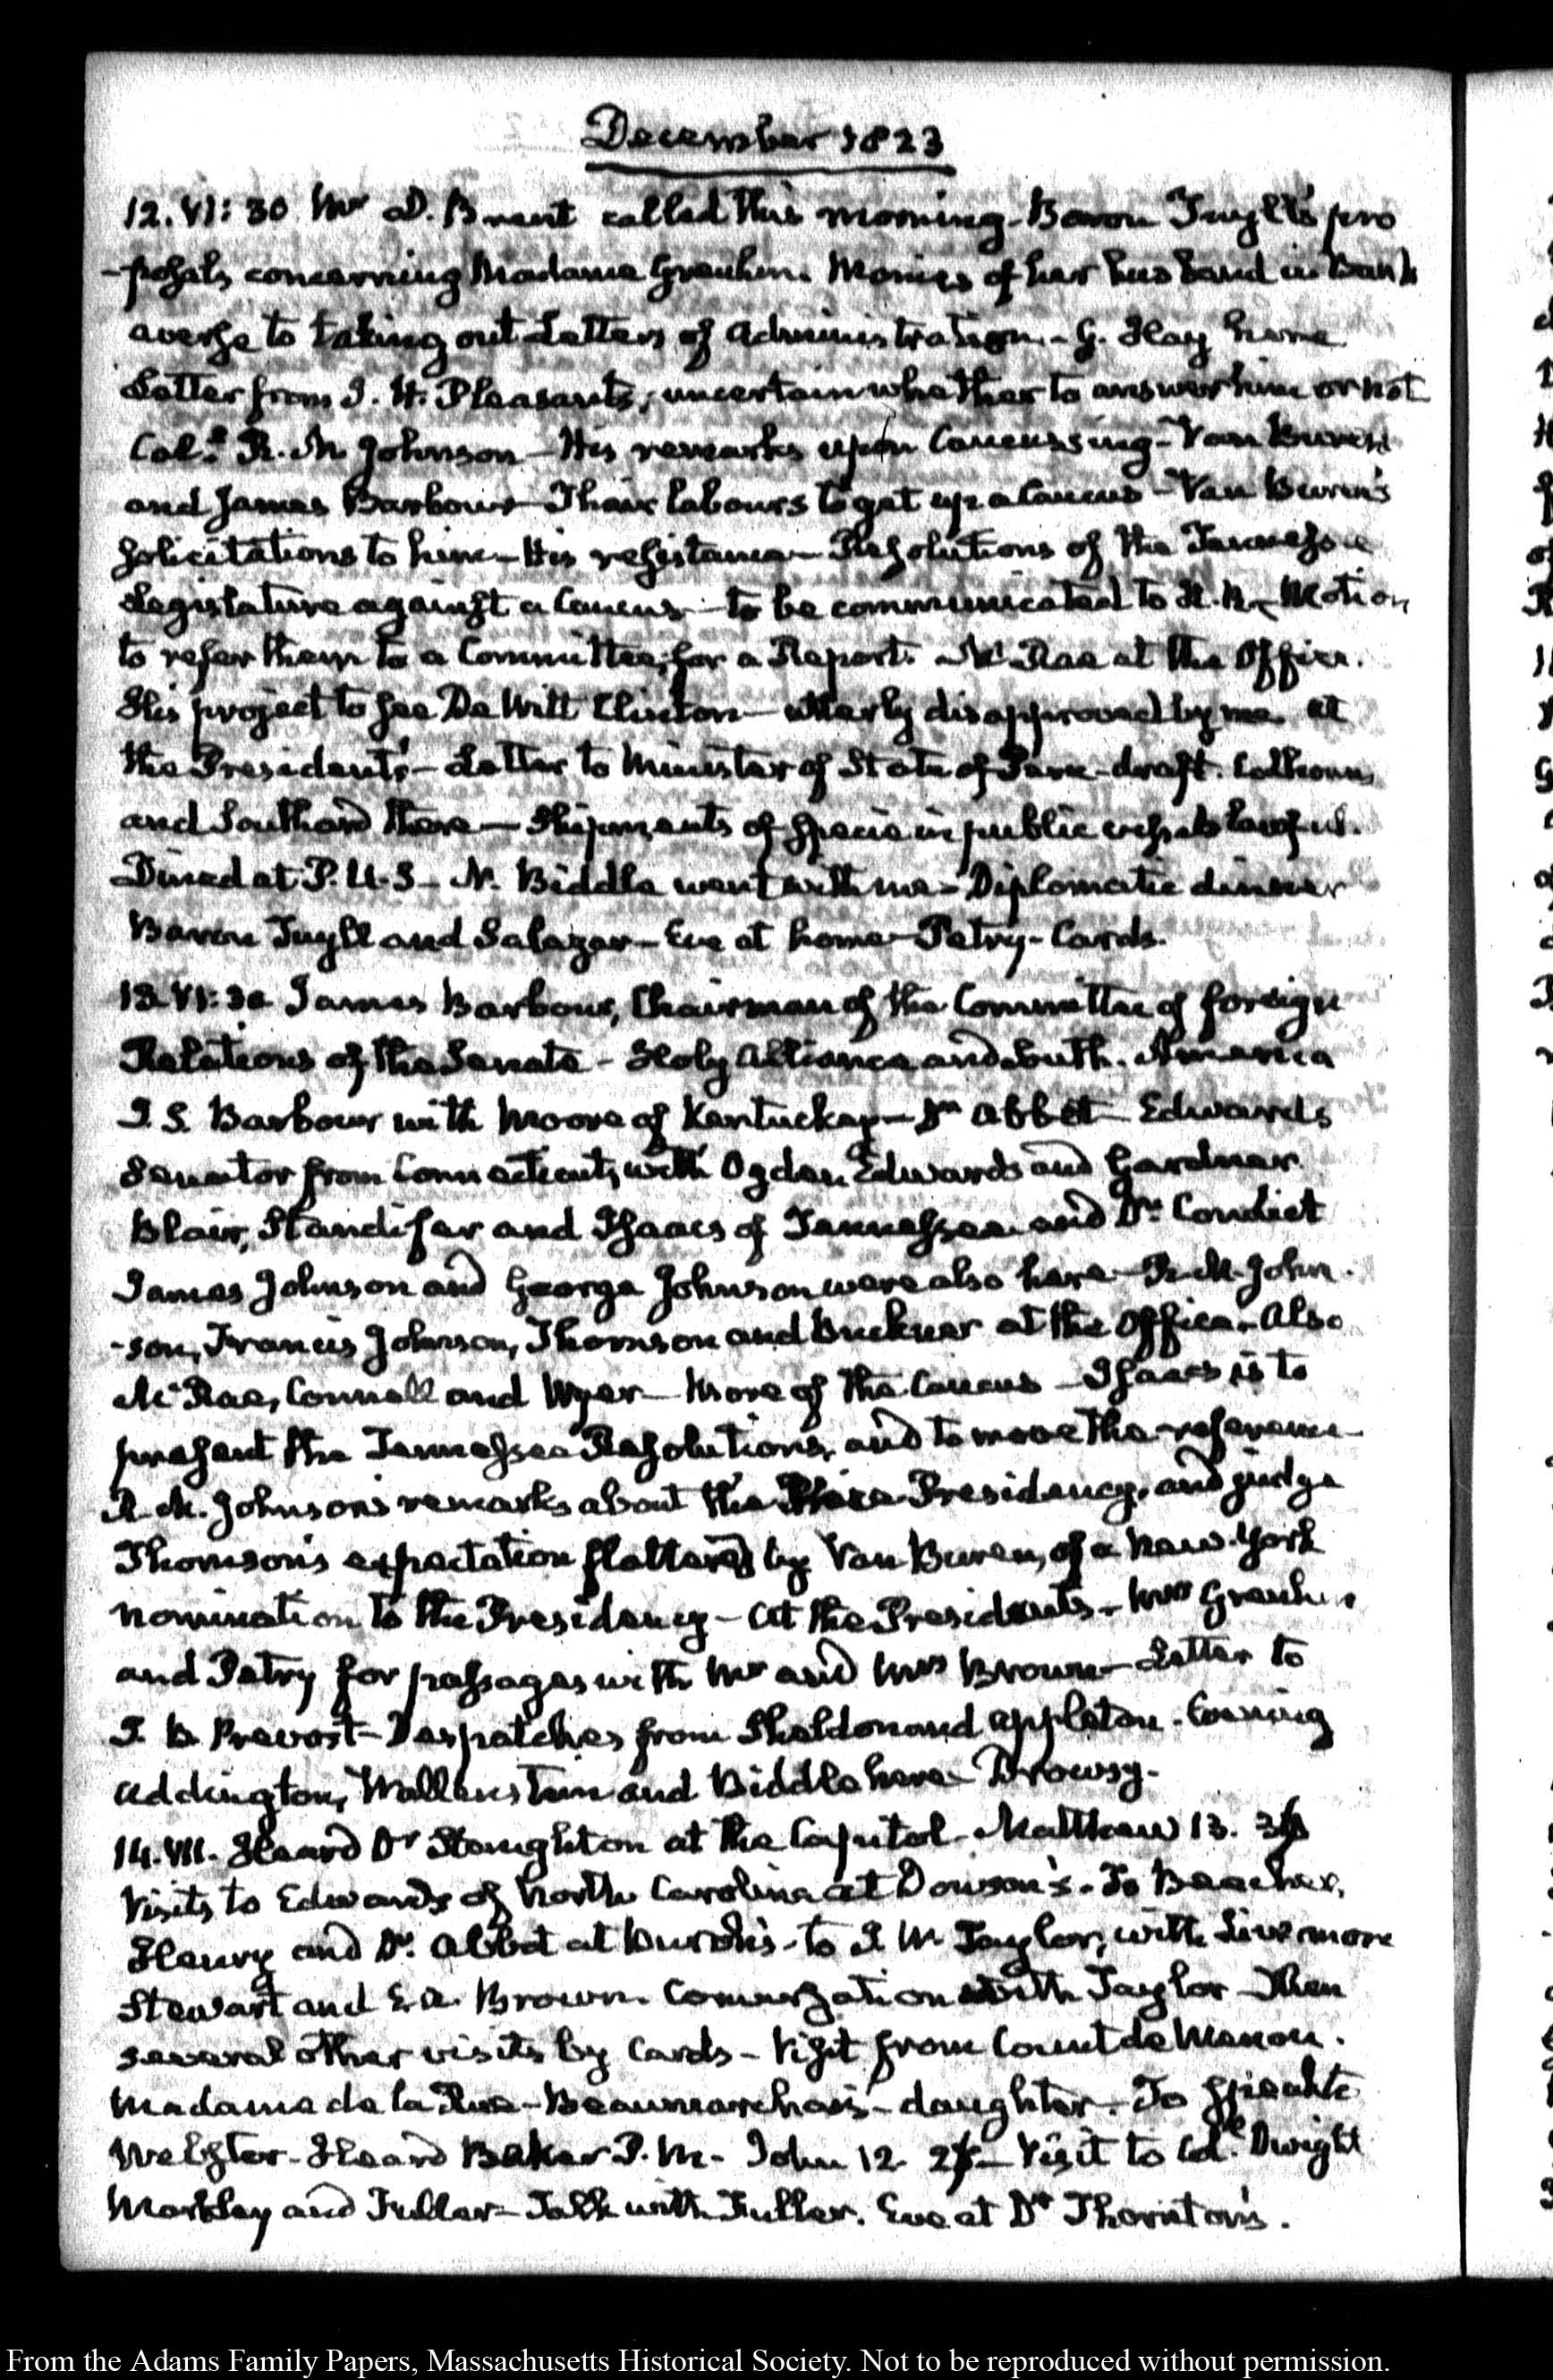 December 1823
12. VI: 30 Mr D. Brent called this morning - Baron Tuyll's pro
-posals concerning Madame Greuhm. Monies of her husband in Bank
averse to taking out Letters of Administration. - G. Hay here
Letter from J. H. Pleasants, uncertain whether to answer him or not
Col.l R. M. Johnson - His remarks upon Caucussing - Van Buren
and James Barbour - Their labours to get up a Caucus - Van Buren's
solicitations to him - His resistance - Resolutions of the Tennessee
Legislature against a Caucus - to be communicated to H. R. - Motion
to refer them to a Committee, for a Report. McRae at the Office.
His project to see De Witt Clinton - utterly disapproved by me. At
the President's - Letter to Minister of State of Peru - draft. Calhoun
and Southard there - Shipments of specie in public vessels lawful.
Dined at P. U. S - N. Biddle went with me - Diplomatic dinner
Baron Tuyll and Salazar - Eve at home - Petry - Cards.
13. VI: 30 James Barbour, Chairman of the Committee of foreign
Relations of the Senate - Holy Alliance and South. America
J. S. Barbour with Moore of Kentuckey - Dr Abbot - Edwards
Senator from Connecticut, with Ogden Edwards and Gardner.
Blair, Standifer and Isaacs of Tennessee and Dr. Condict
James Johnson and George Johnson were also here - R. M. John-
-son, Francis Johnson, Thomson and Buckner at the Office. Also
McRae, Connell and Wyer - More of the Caucus - Isaacs is to
present the Tennessee Resolutions, and to move the reference
R. M. Johnson's remarks about the Presidency, and judge
Thomson's expectation flattered by Van Buren, of a New York
nomination to the Presidency - At the President's - Mrs Greuhm
and Petry for passages with Mr and Mrs Brown - Letter to
J. B. Prevost - Despatches from Sheldon and Appleton. Evening
Addington, Wallenstein and Biddle here - Drowsy -
14. VII. Heard Dr Staughton at the Capitol - Matthew 13.
Visits to Edwards of North Carolina at Dowson's. To Beecher,
Henry and Dr. Abbot at - to J. W. Taylor, with Livermore
Stewart and E. A. Brown. Conversation with Taylor - Then
several other visits by Cards - Visit from Count de Menou.
Madame de la Rue - Beaumarchais' daughter. To speak to
Webster - Heard Baker P. M - John 12. - Visit to Col.l Dwight
Markley and Fuller - Talk with Fuller. Eve at Dr Thornton's.
From the Adams Family Papers, Massachusetts Historical Society. Not to be reproduced without permission.